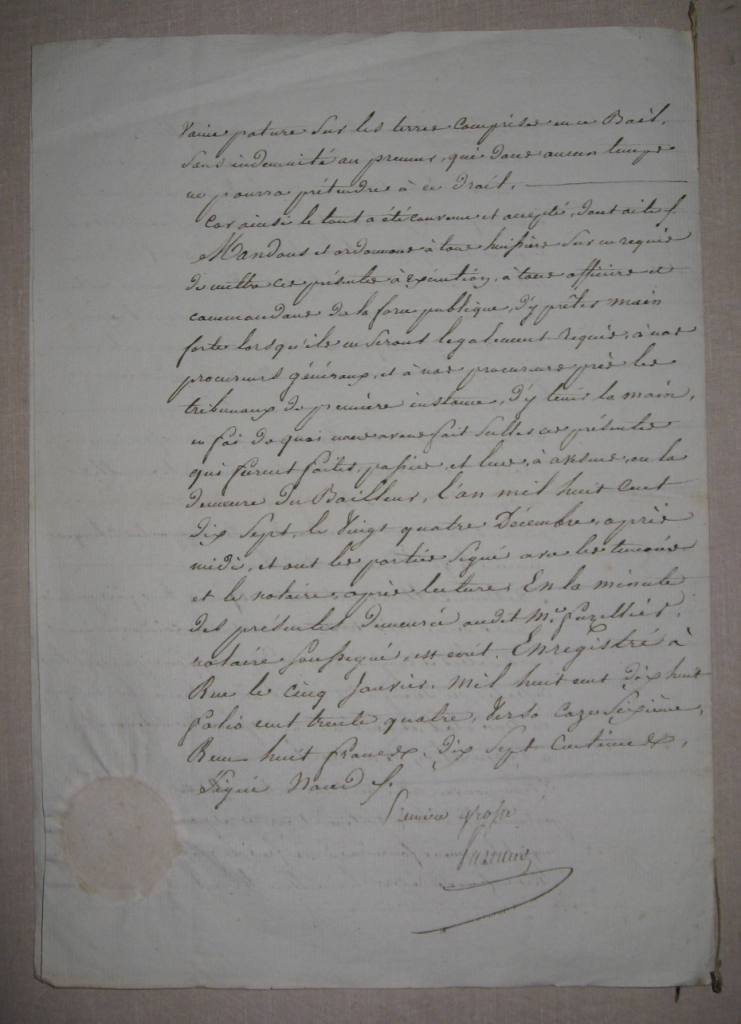 Vaine pature sur les terres comprises en ce Bail,
sans indemnité au preneur, qui dans aucun temps
ne pourra prétendre à ce Droit.
Car ainsi le tout a été convenu et accepté, dont acte
Mandons et ordonnons à tous huissiers sur ce requis
de mettre ces présentes à exécution, à tous officiers et
commandans de la force publique, d'y prêter main
forte lorsqu'ils en seront legalement requis, à nos
procureurs généraux, et à nos procureurs près les
tribunaux de première instance, d'y tenir la main,
en foi de quoi nous avons fait sceller ces présentes
qui furent faites, passées et lues, à , en la
demeure du Bailleur, l'an mil huit cent
dix sept, le vingt quatre Décembre, après
midi, et ont les parties signé avec les temoins
et le notaire, après lecture. En la minute
des présentes demeurée audit Me.
notaire soussigné, est écrit. Enregistré à
Rue le cinq Janvier, mil huit cent dix huit
folio cent trente quatre, verso cazes sixième,
Reçu huit francs, dix sept centimes,
Signé
Première grosse